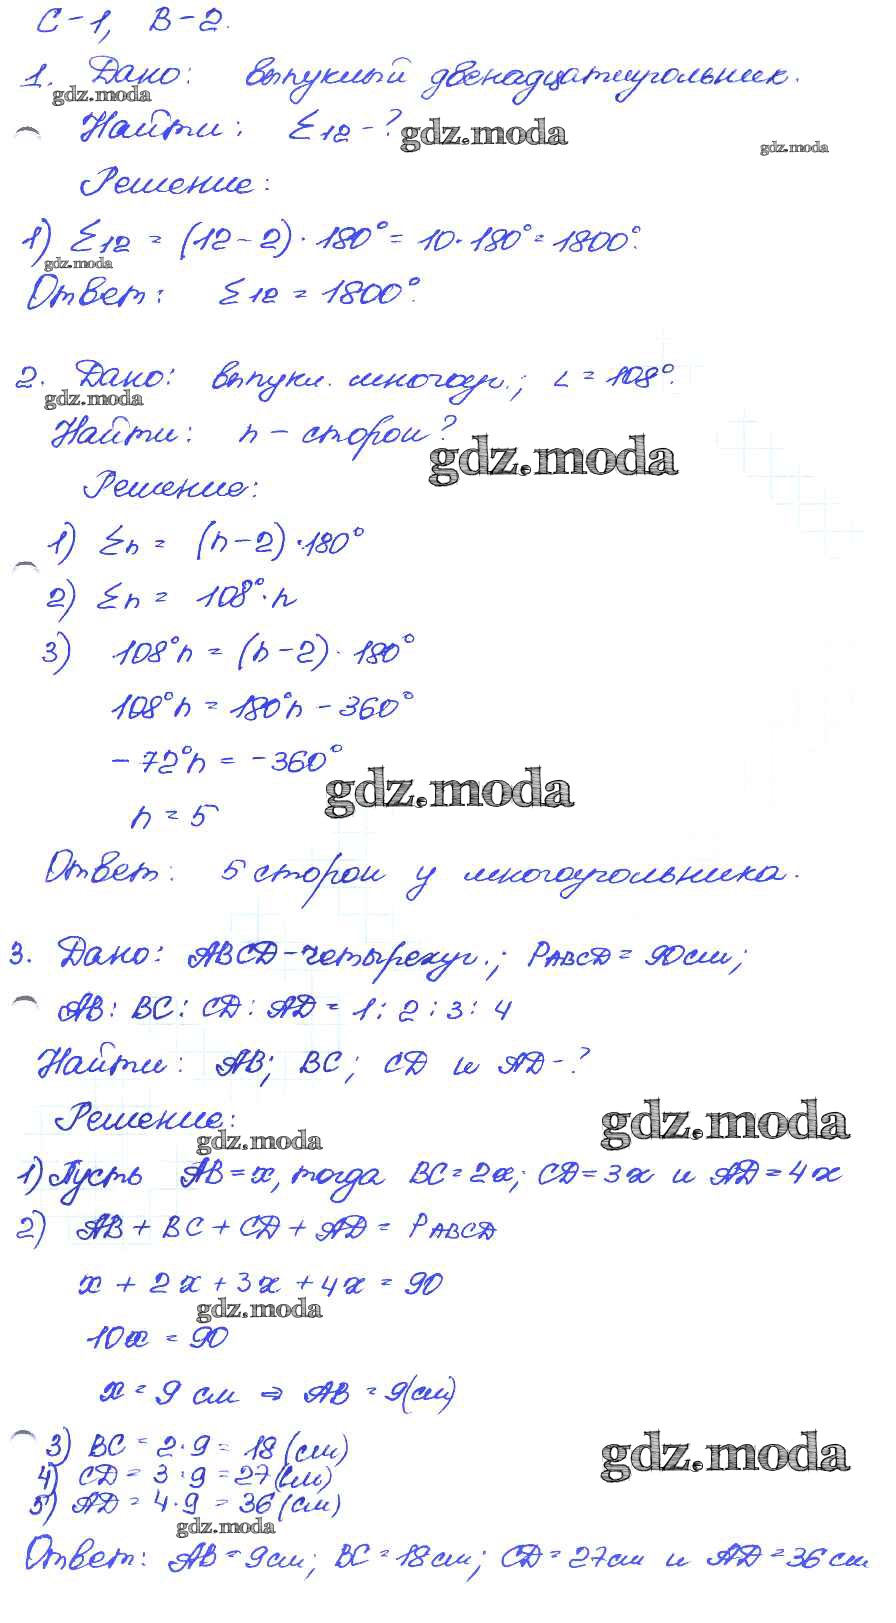 С-1, В-2.
1. Дано: выпуклый двенадцатиугольник.
gdz.moda
Найти: Σ12 - ?
gdz.moda
gdz.moda
Решение:
1) Σ12 = (12-2)·180° = 10·180° = 1800°.
gdz.moda
Ответ: Σ12 = 1800°.
2. Дано: выпукл. многоуг.; ∠ = 108°.
gdz.moda
Найти: n - сторон?
gdz.moda
Решение:
1) Σn = (n-2)·180°
2) Σn = 108°·n
3) 108°n = (n-2)·180°
108°n = 180°n - 360°
-72°n = -360°
gdz.moda
n = 5
Ответ: 5 сторон у многоугольника.
3. Дано: ABCD-четырехуг.; PABCD = 90см;
AB: BC: CD: AD = 1: 2: 3: 4
Найти: AB; BC; CD и AD - ?
Решение:
gdz.moda
gdz.moda
1) Пусть AB = x, тогда BC = 2x; CD = 3x и AD = 4x
2) AB + BC + CD + AD = PABCD
x + 2x + 3x + 4x = 90
gdz.moda
10x = 90
x = 9 см ⇒ AB = 9(см)
3) BC = 2·9 = 18 (см)
gdz.moda
4) CD = 3·9 = 27(см)
5) AD = 4·9 = 36 (см)
gdz.moda
Ответ: AB = 9см; BC = 18см; CD = 27см и AD = 36см